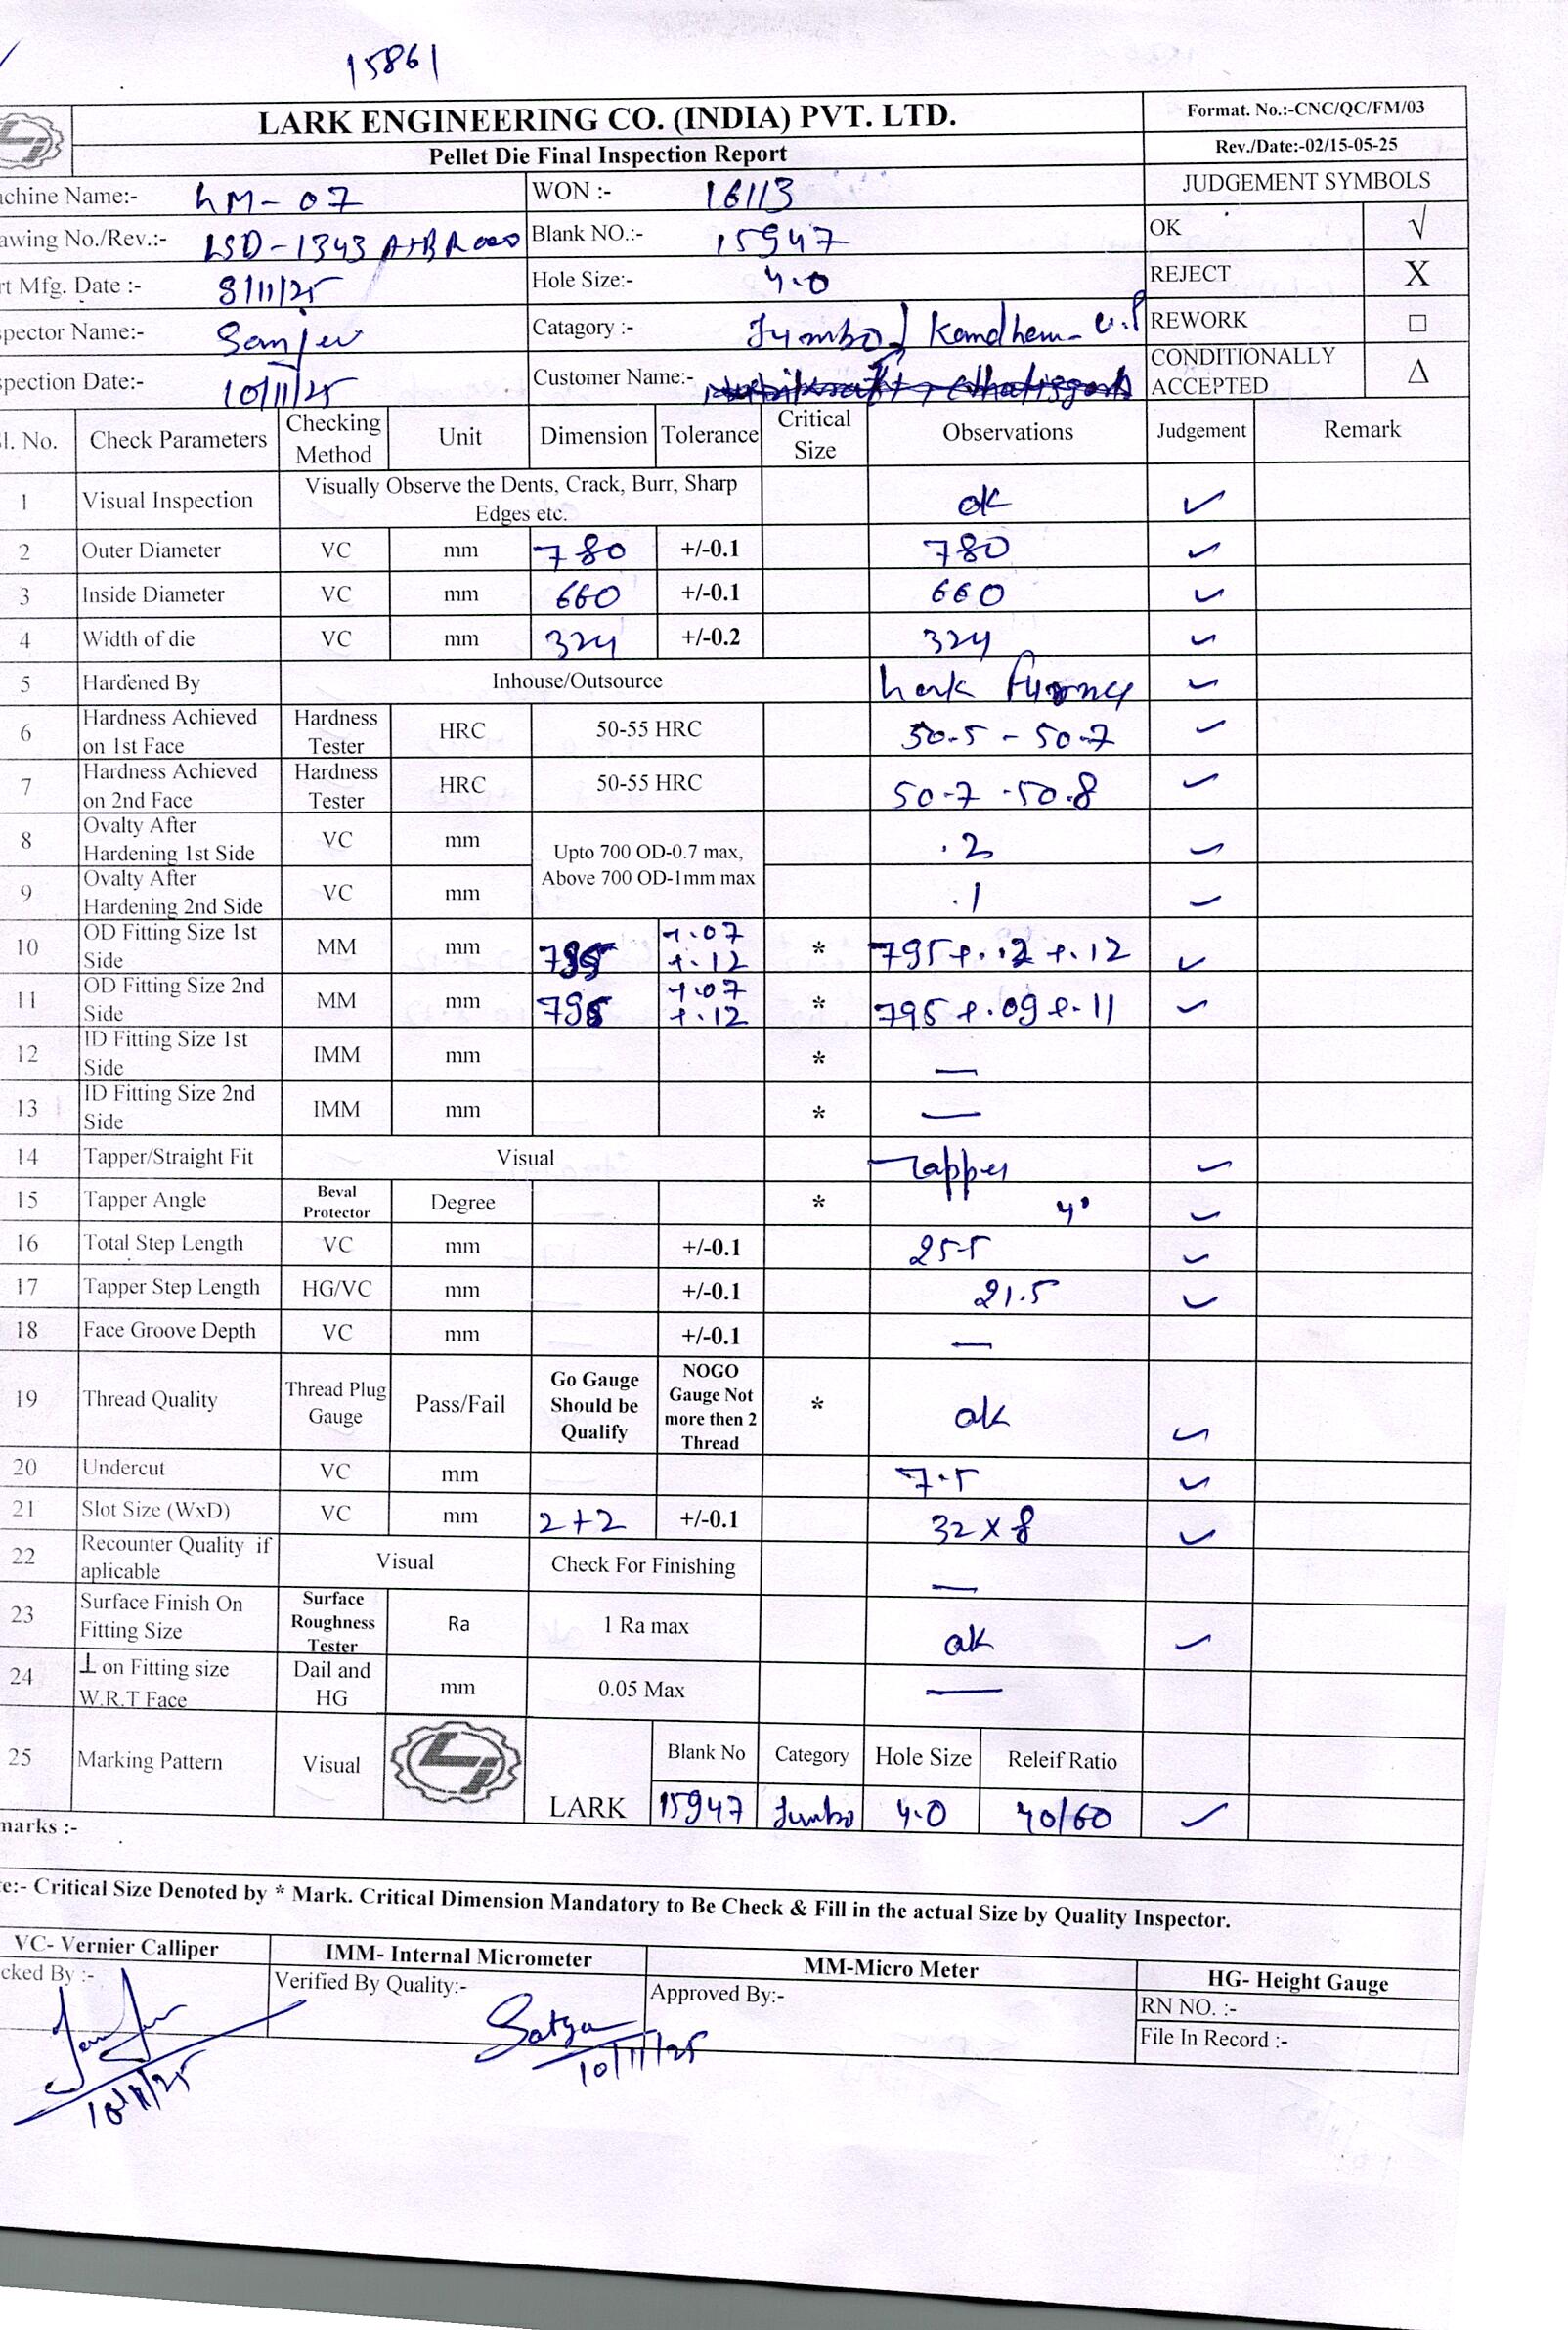 15861
LARK ENGINEERING CO. (INDIA) PVT. LTD.
Format. No.:-CNC/QC/FM/03
Pellet Die Final Inspection Report
Rev./Date:-02/15-05-25
achine Name:- LM-07 WON :- 16113 JUDGEMENT SYMBOLS
awing No./Rev.:- LSD-1343 A+B R000 Blank NO.:- 15947 OK √
rt Mfg. Date :- 8/11/25 Hole Size:- 4.0 REJECT X
pector Name:- Sanjev Catagory :- Jumbo / Kamdhem-U.P REWORK □
pection Date:- 10/11/25 Customer Name:- CONDITIONALLY ACCEPTED Δ
l. No. Check Parameters Checking Method Unit Dimension Tolerance Critical Size Observations Judgement Remark
1 Visual Inspection Visually Observe the Dents, Crack, Burr, Sharp Edges etc. ok ✓
2 Outer Diameter VC mm 780 +/-0.1 780 ✓
3 Inside Diameter VC mm 660 +/-0.1 660 ✓
4 Width of die VC mm 324 +/-0.2 324 ✓
5 Hardened By Inhouse/Outsource Lark ✓
6 Hardness Achieved on 1st Face Hardness Tester HRC 50-55 HRC 50.5 - 50.7 ✓
7 Hardness Achieved on 2nd Face Hardness Tester HRC 50-55 HRC 50.7 - 50.8 ✓
8 Ovalty After Hardening 1st Side VC mm Upto 700 OD-0.7 max, Above 700 OD-1mm max .2 ✓
9 Ovalty After Hardening 2nd Side VC mm .1 ✓
10 OD Fitting Size 1st Side MM mm 795 +.07 +.12 * 795 +.12 ✓
11 OD Fitting Size 2nd Side MM mm 795 +.07 +.12 * 795 +.09 +.11 ✓
12 ID Fitting Size 1st Side IMM mm * —
13 ID Fitting Size 2nd Side IMM mm * —
14 Tapper/Straight Fit Visual Tapper ✓
15 Tapper Angle Beval Protector Degree * 4° ✓
16 Total Step Length VC mm +/-0.1 25.5 ✓
17 Tapper Step Length HG/VC mm +/-0.1 21.5 ✓
18 Face Groove Depth VC mm +/-0.1 —
19 Thread Quality Thread Plug Gauge Pass/Fail Go Gauge Should be Qualify NOGO Gauge Not more then 2 Thread * ok ✓
20 Undercut VC mm 7.5 ✓
21 Slot Size (WxD) VC mm 2+2 +/-0.1 32 x 8 ✓
22 Recounter Quality if aplicable Visual Check For Finishing —
23 Surface Finish On Fitting Size Surface Roughness Tester Ra 1 Ra max ok ✓
24 ⊥ on Fitting size W.R.T Face Dail and HG mm 0.05 Max —
25 Marking Pattern Visual LARK Blank No Category Hole Size Releif Ratio
15947 Jumbo 4.0 40/60 ✓
marks :-
te:- Critical Size Denoted by * Mark. Critical Dimension Mandatory to Be Check & Fill in the actual Size by Quality Inspector.
VC- Vernier Calliper IMM- Internal Micrometer MM-Micro Meter HG- Height Gauge
cked By :- Verified By Quality:- Approved By:- RN NO. :-
Satya File In Record :-
10/11/25 10/11/25